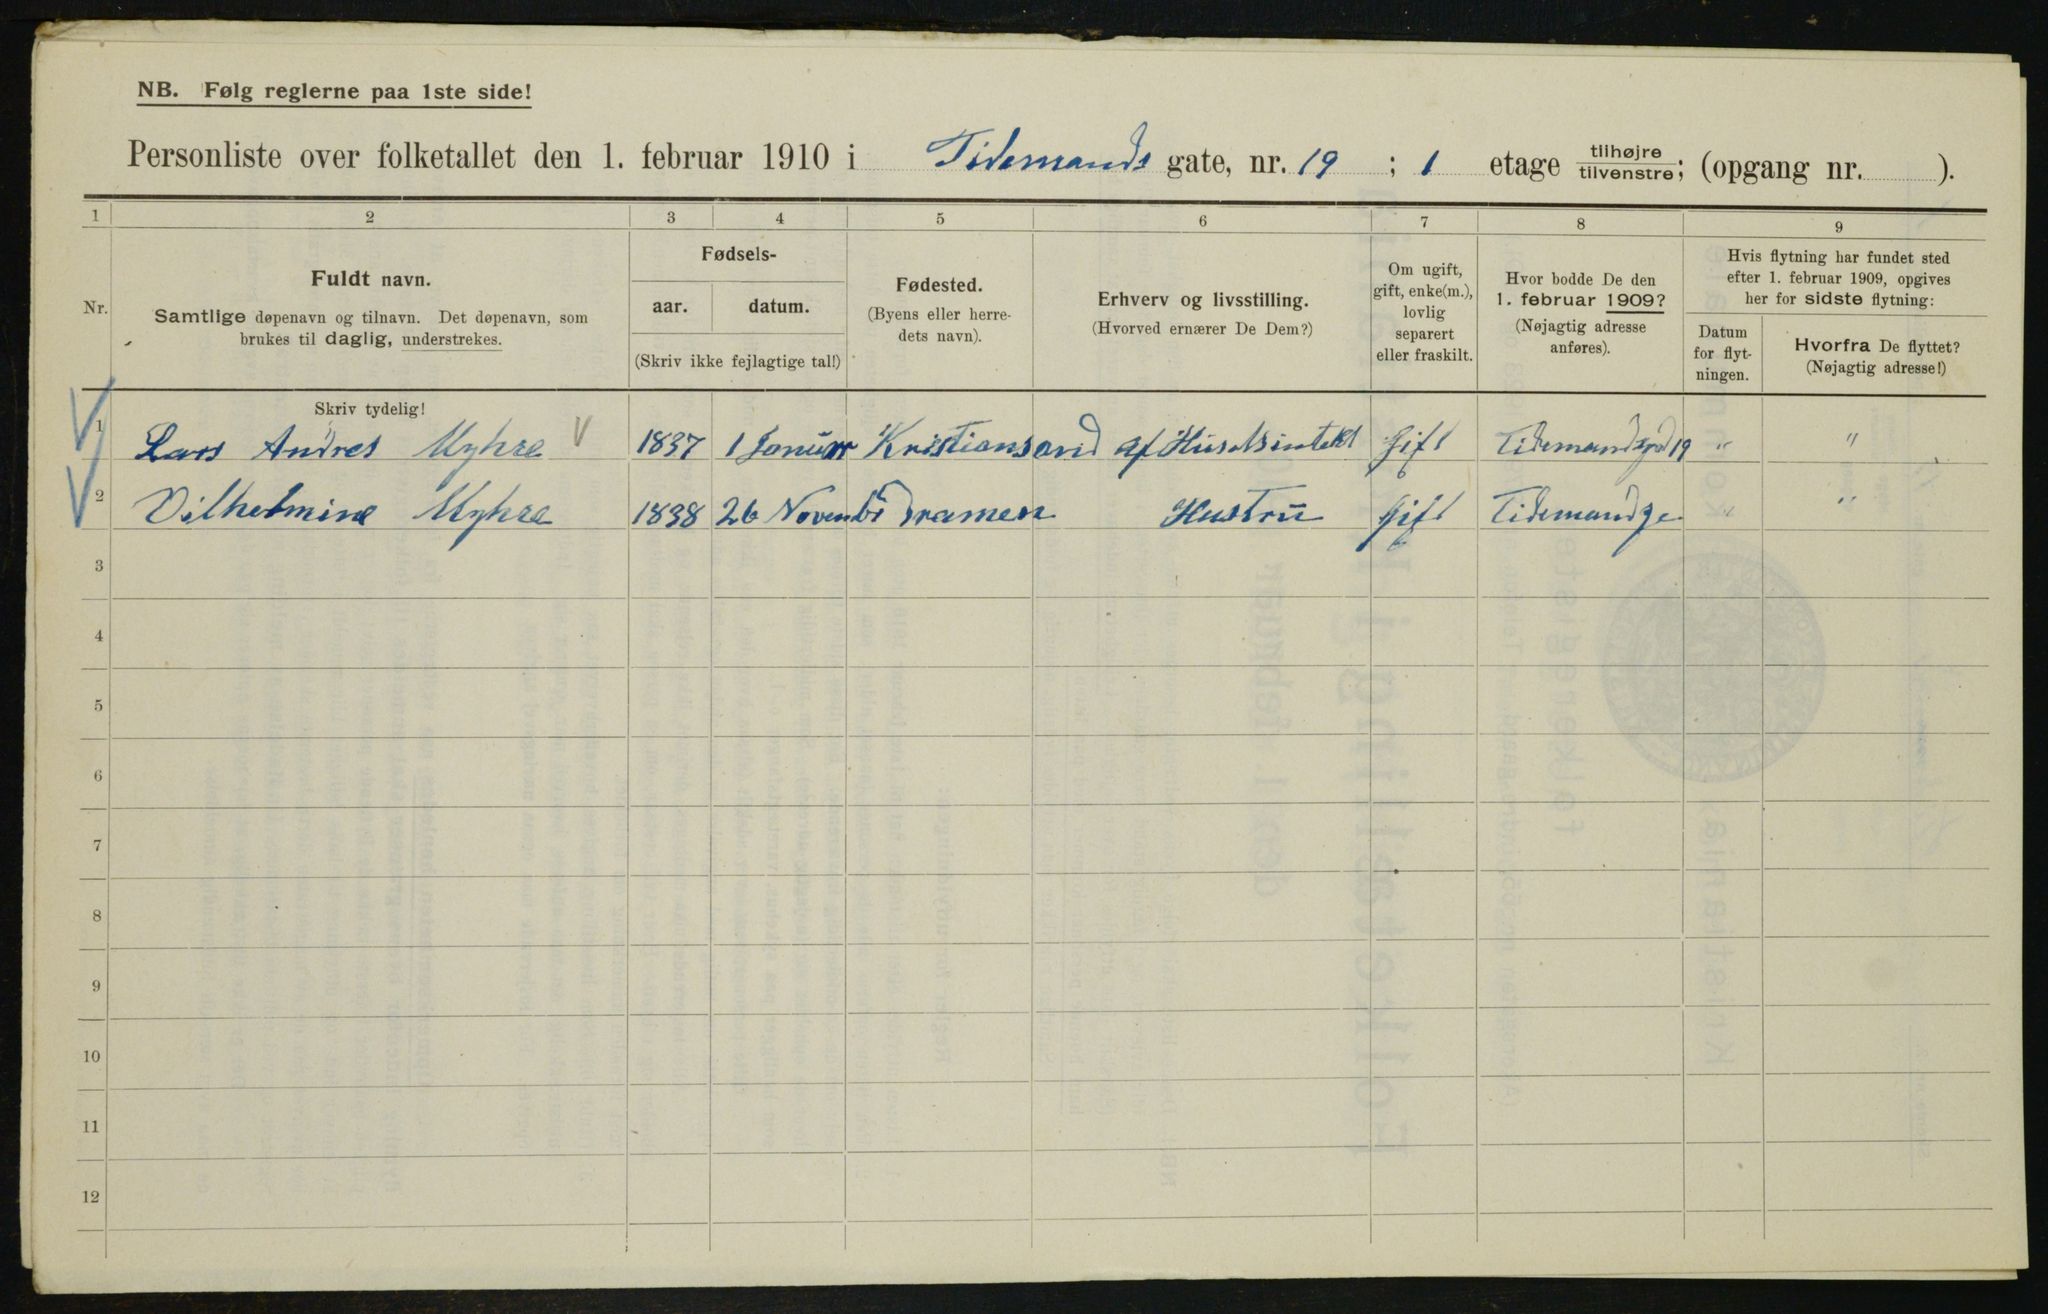 NB. Følg reglerne paa 1ste side!
Personliste over folketallet den 1. februar 1910 i Tidemands gate, nr. 19 ; 1 etage tilhøjre tilvenstre; (opgang nr. ).
1 2 3 4 5 6 7 8 9
Nr.
Fuldt navn.
Samtlige døpenavn og tilnavn. Det døpenavn, som
brukes til daglig, understrekes.
Fødsels-
aar. datum.
(Skriv ikke fejlagtige tal!)
Fødested.
(Byens eller herre-
dets navn).
Erhverv og livsstilling.
(Hvorved ernærer De Dem?)
Om ugift,
gift, enke(m.),
lovlig
separert
eller fraskilt.
Hvor bodde De den
1. februar 1909?
(Nøjagtig adresse
anføres).
Hvis flytning har fundet sted
efter 1. februar 1909, opgives
her for sidste flytning:
Datum
for flyt-
ningen.
Hvorfra De flyttet?
(Nøjagtig adresse!)
Skriv tydelig!
1 Lars Andres Myhre 1837 1 Januar Kristiansand af Husets intekt Gift 19 " "
2 Vilhelmine Myhre 1838 26 Novemb Dramen Hustru Gift Tidemandsge " "
3
4
5
6
7
8
9
10
11
12